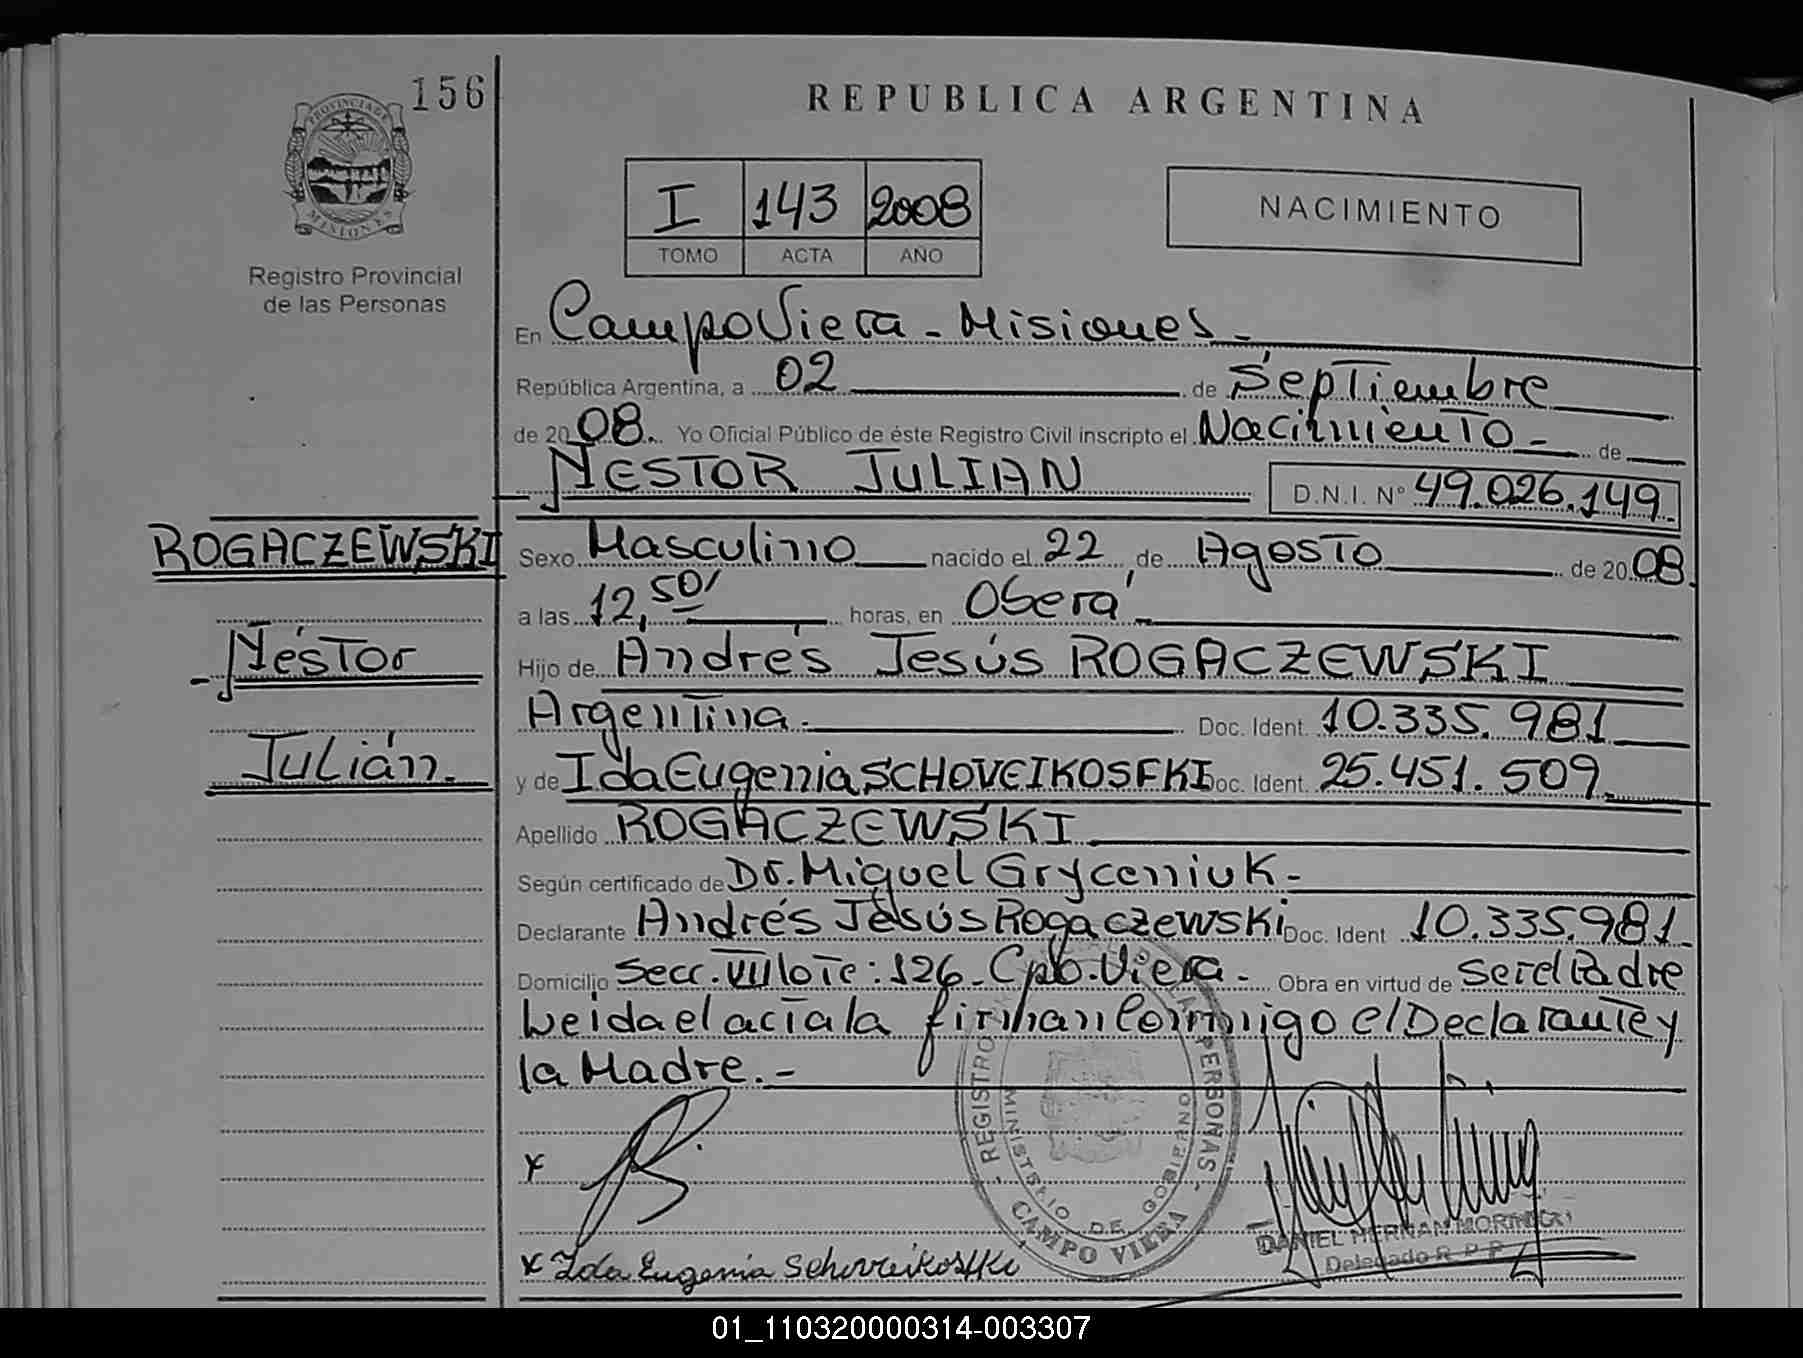 156
PROVINCIA DE
MISIONES
Registro Provincial
de las Personas
REPUBLICA ARGENTINA
I 143 2008
TOMO ACTA AÑO
NACIMIENTO
En Campo Viera - Misiones -
República Argentina, a 02 de Septiembre
de 2008. Yo Oficial Público de éste Registro Civil inscripto el Nacimiento - de
NESTOR JULIAN D.N.I. Nº 49.026.149
ROGACZEWSKI
Néstor
Julián.
Sexo Masculino nacido el 22 de Agosto de 2008.
a las 12,50' horas, en Oberá
Hijo de Andrés Jesús ROGACZEWSKI
Argentina. Doc. Ident. 10.335.981
y de Ida Eugenia SCHOVEIKOSFKI Doc. Ident. 25.451.509
Apellido ROGACZEWSKI
Según certificado de Dr. Miguel Gryceniuk -
Declarante Andrés Jesús Rogaczewski Doc. Ident 10.335.981
Domicilio Secc. VII lote: 126 - Cpo. Viera - Obra en virtud de ser el Padre
Leida el acta la firman conmigo el Declarante y
la Madre. -
REGISTRO PERSONAS
MINISTERIO DE GOBIERNO
CAMPO VIERA
x
x Ida Eugenia Schoveikosfki
DANIEL HERNAN
Delegado R. P. P.
01_110320000314-003307